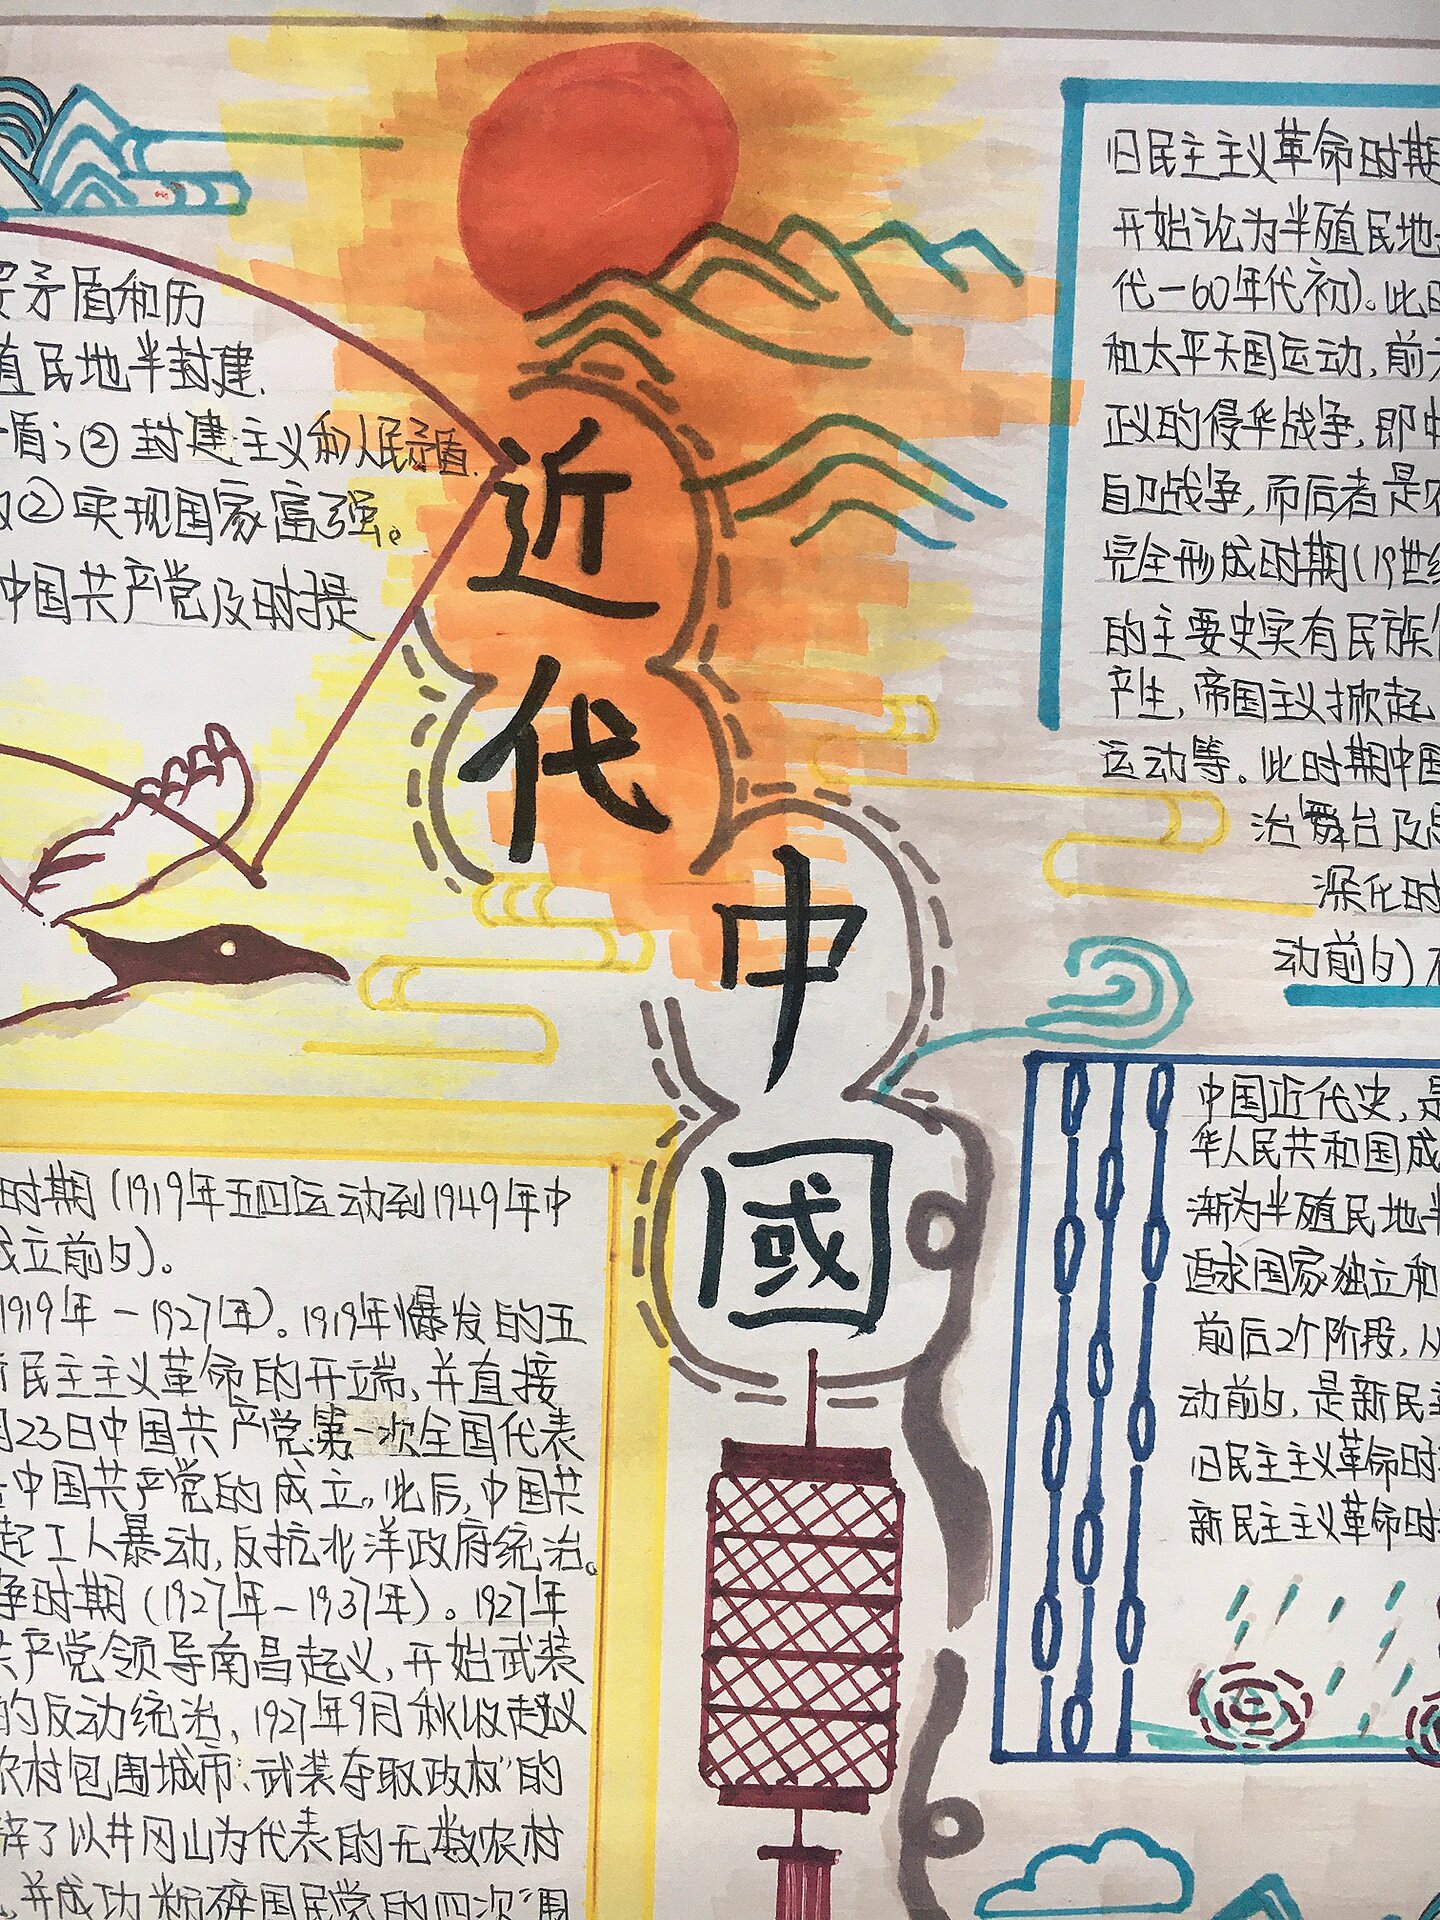 矛盾和历
殖民地半封建.
盾;②封建主义和人民矛盾.
②实现国家富强。
中国共产党及时提
近代中國
旧民主主义革命时期
开始沦为半殖民地
代一60年代初)。此时
和太平天国运动,前
正义的侵华战争,即中
自卫战争,而后者是
完全形成时期(19世纪
的主要史实有民族
产生,帝国主义掀起
运动等。此时期中国
治舞台及思
深化时
动前夕)
时期(1919年五四运动到1949年中
成立前夕)。
1919年-1927年)。1919年爆发的五
新民主主义革命的开端,并直接
月23日中国共产党第一次全国代表
中国共产党的成立。此后,中国共
起工人暴动,反抗北洋政府统治。
争时期(1927年-1937年)。1927年
共产党领导南昌起义,开始武装
的反动统治,1927年9月秋收起义
农村包围城市、武装夺取政权"的
辟了以井冈山为代表的无数农村
,并成功粉碎国民党的四次"围
中国近代史,是
华人民共和国成
渐为半殖民地半
追求国家独立和
前后2个阶段,从
动前夕,是新民主
旧民主主义革命时
新民主主义革命时